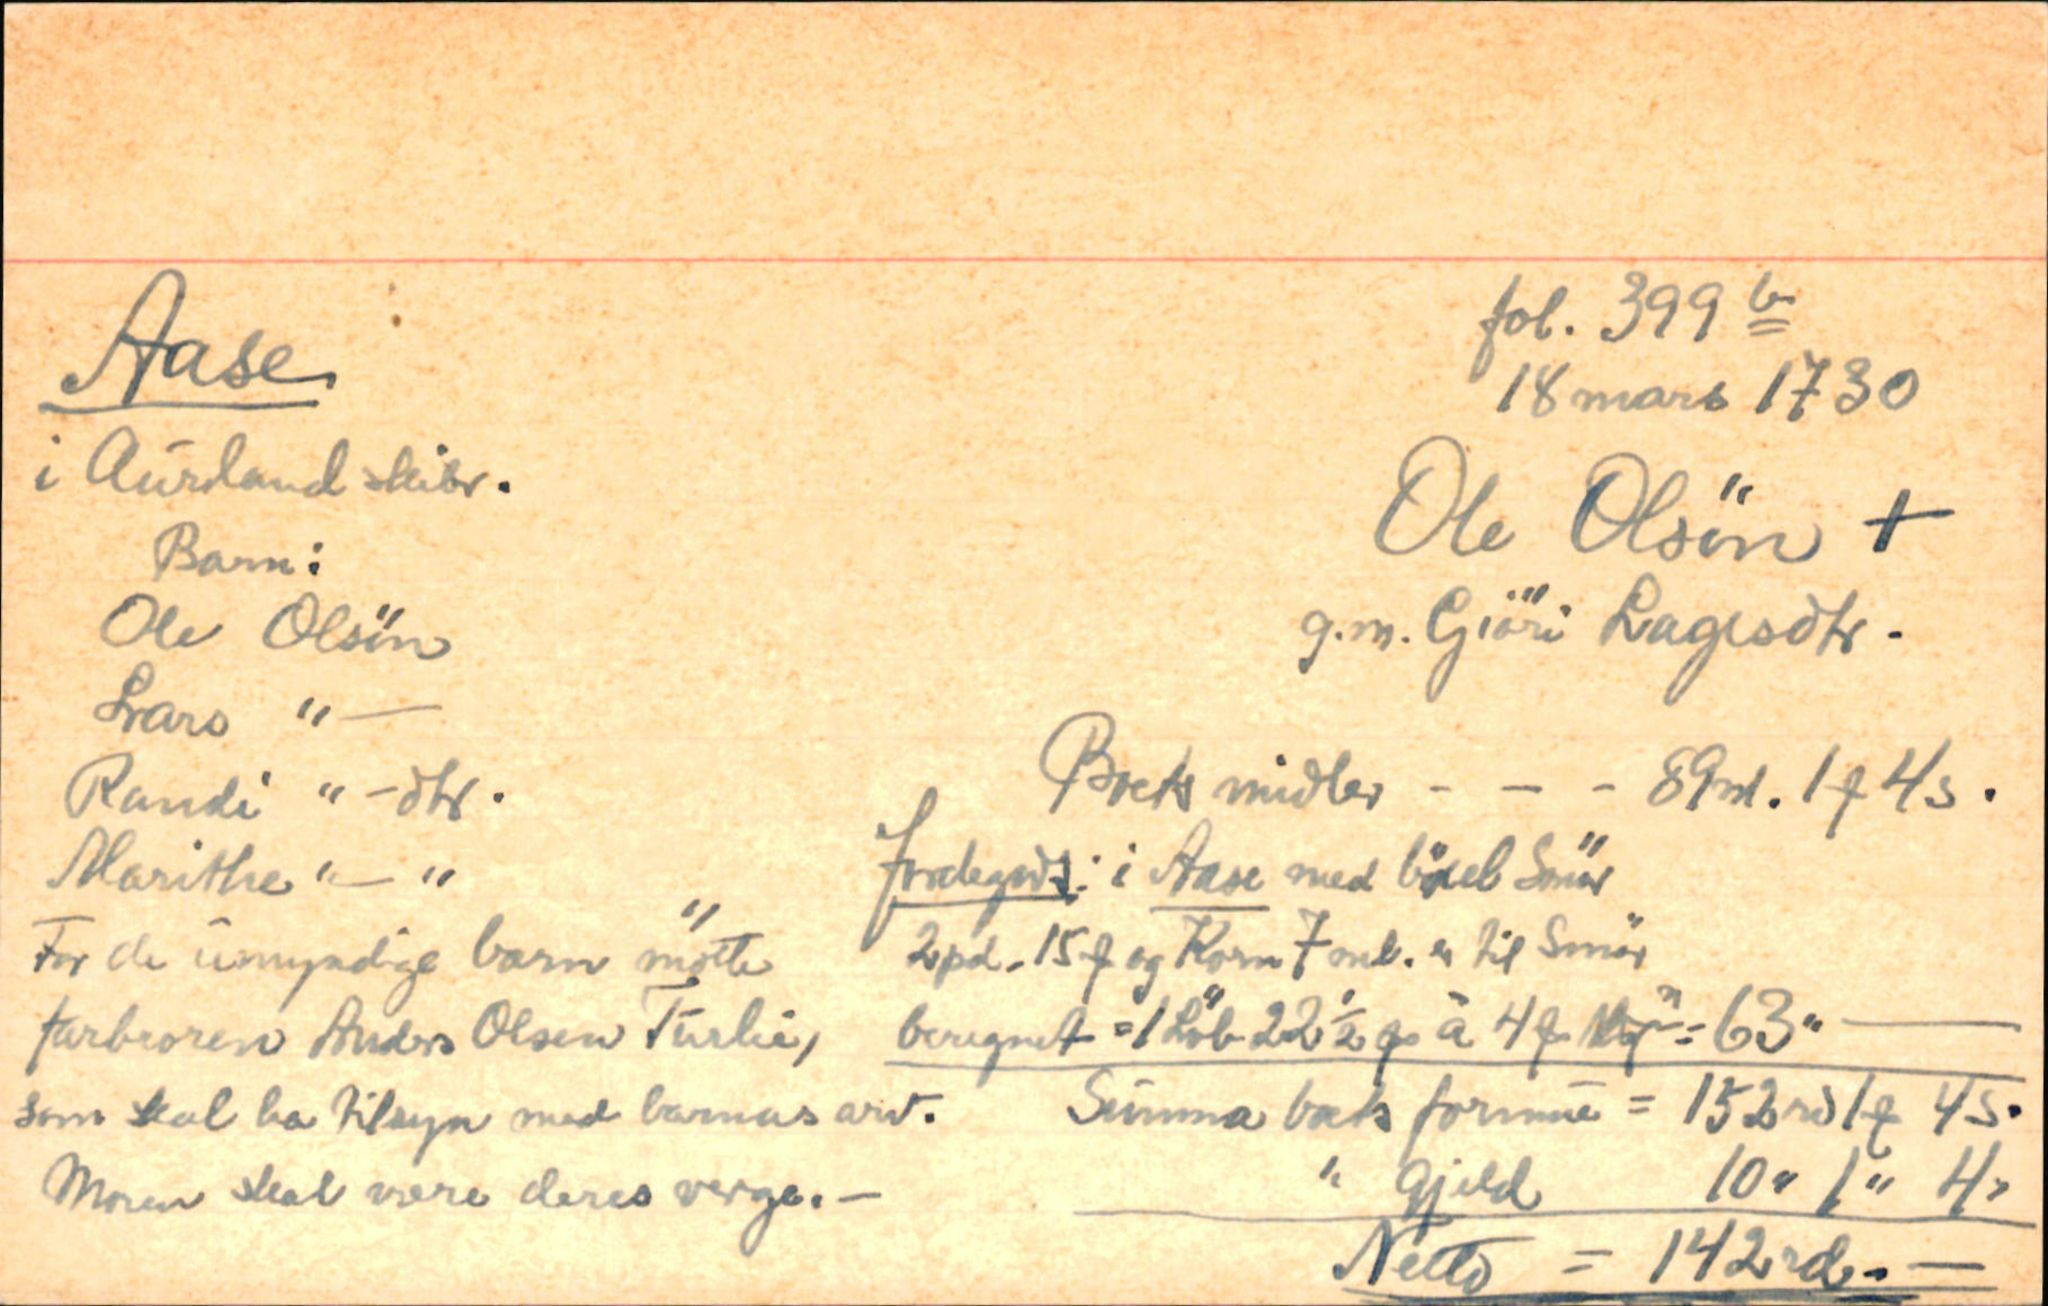 Aase
i Aurland skibr.
Barn:
Ole Olsön
Lars " —
Randi " - dtr.
Marithe " — "
For de umyndige barn mötte
farbroren Anders Olsen Turlie,
som skal ha tilsyn med barnas arv.
Moren skal være deres verge. —
fol. 399 b
18 mars 1730
Ole Olsön +
g.m. Giöri Lagesdtr.
Boets midler - - - 89 rd. 1 ƒ 4 s.
Jordegods: i Aase med böxel Smör
2 pd. 15 ƒ og Korn 7 ml. er til Smör
beregnet = 1 Löb 22 ½ ƒ à 4 ƒ = 63 " —
Summa boets formue = 152 rd 1 ƒ 4 s.
" Gjeld 10 " 1 " 4 "
Netto = 142 rd. —